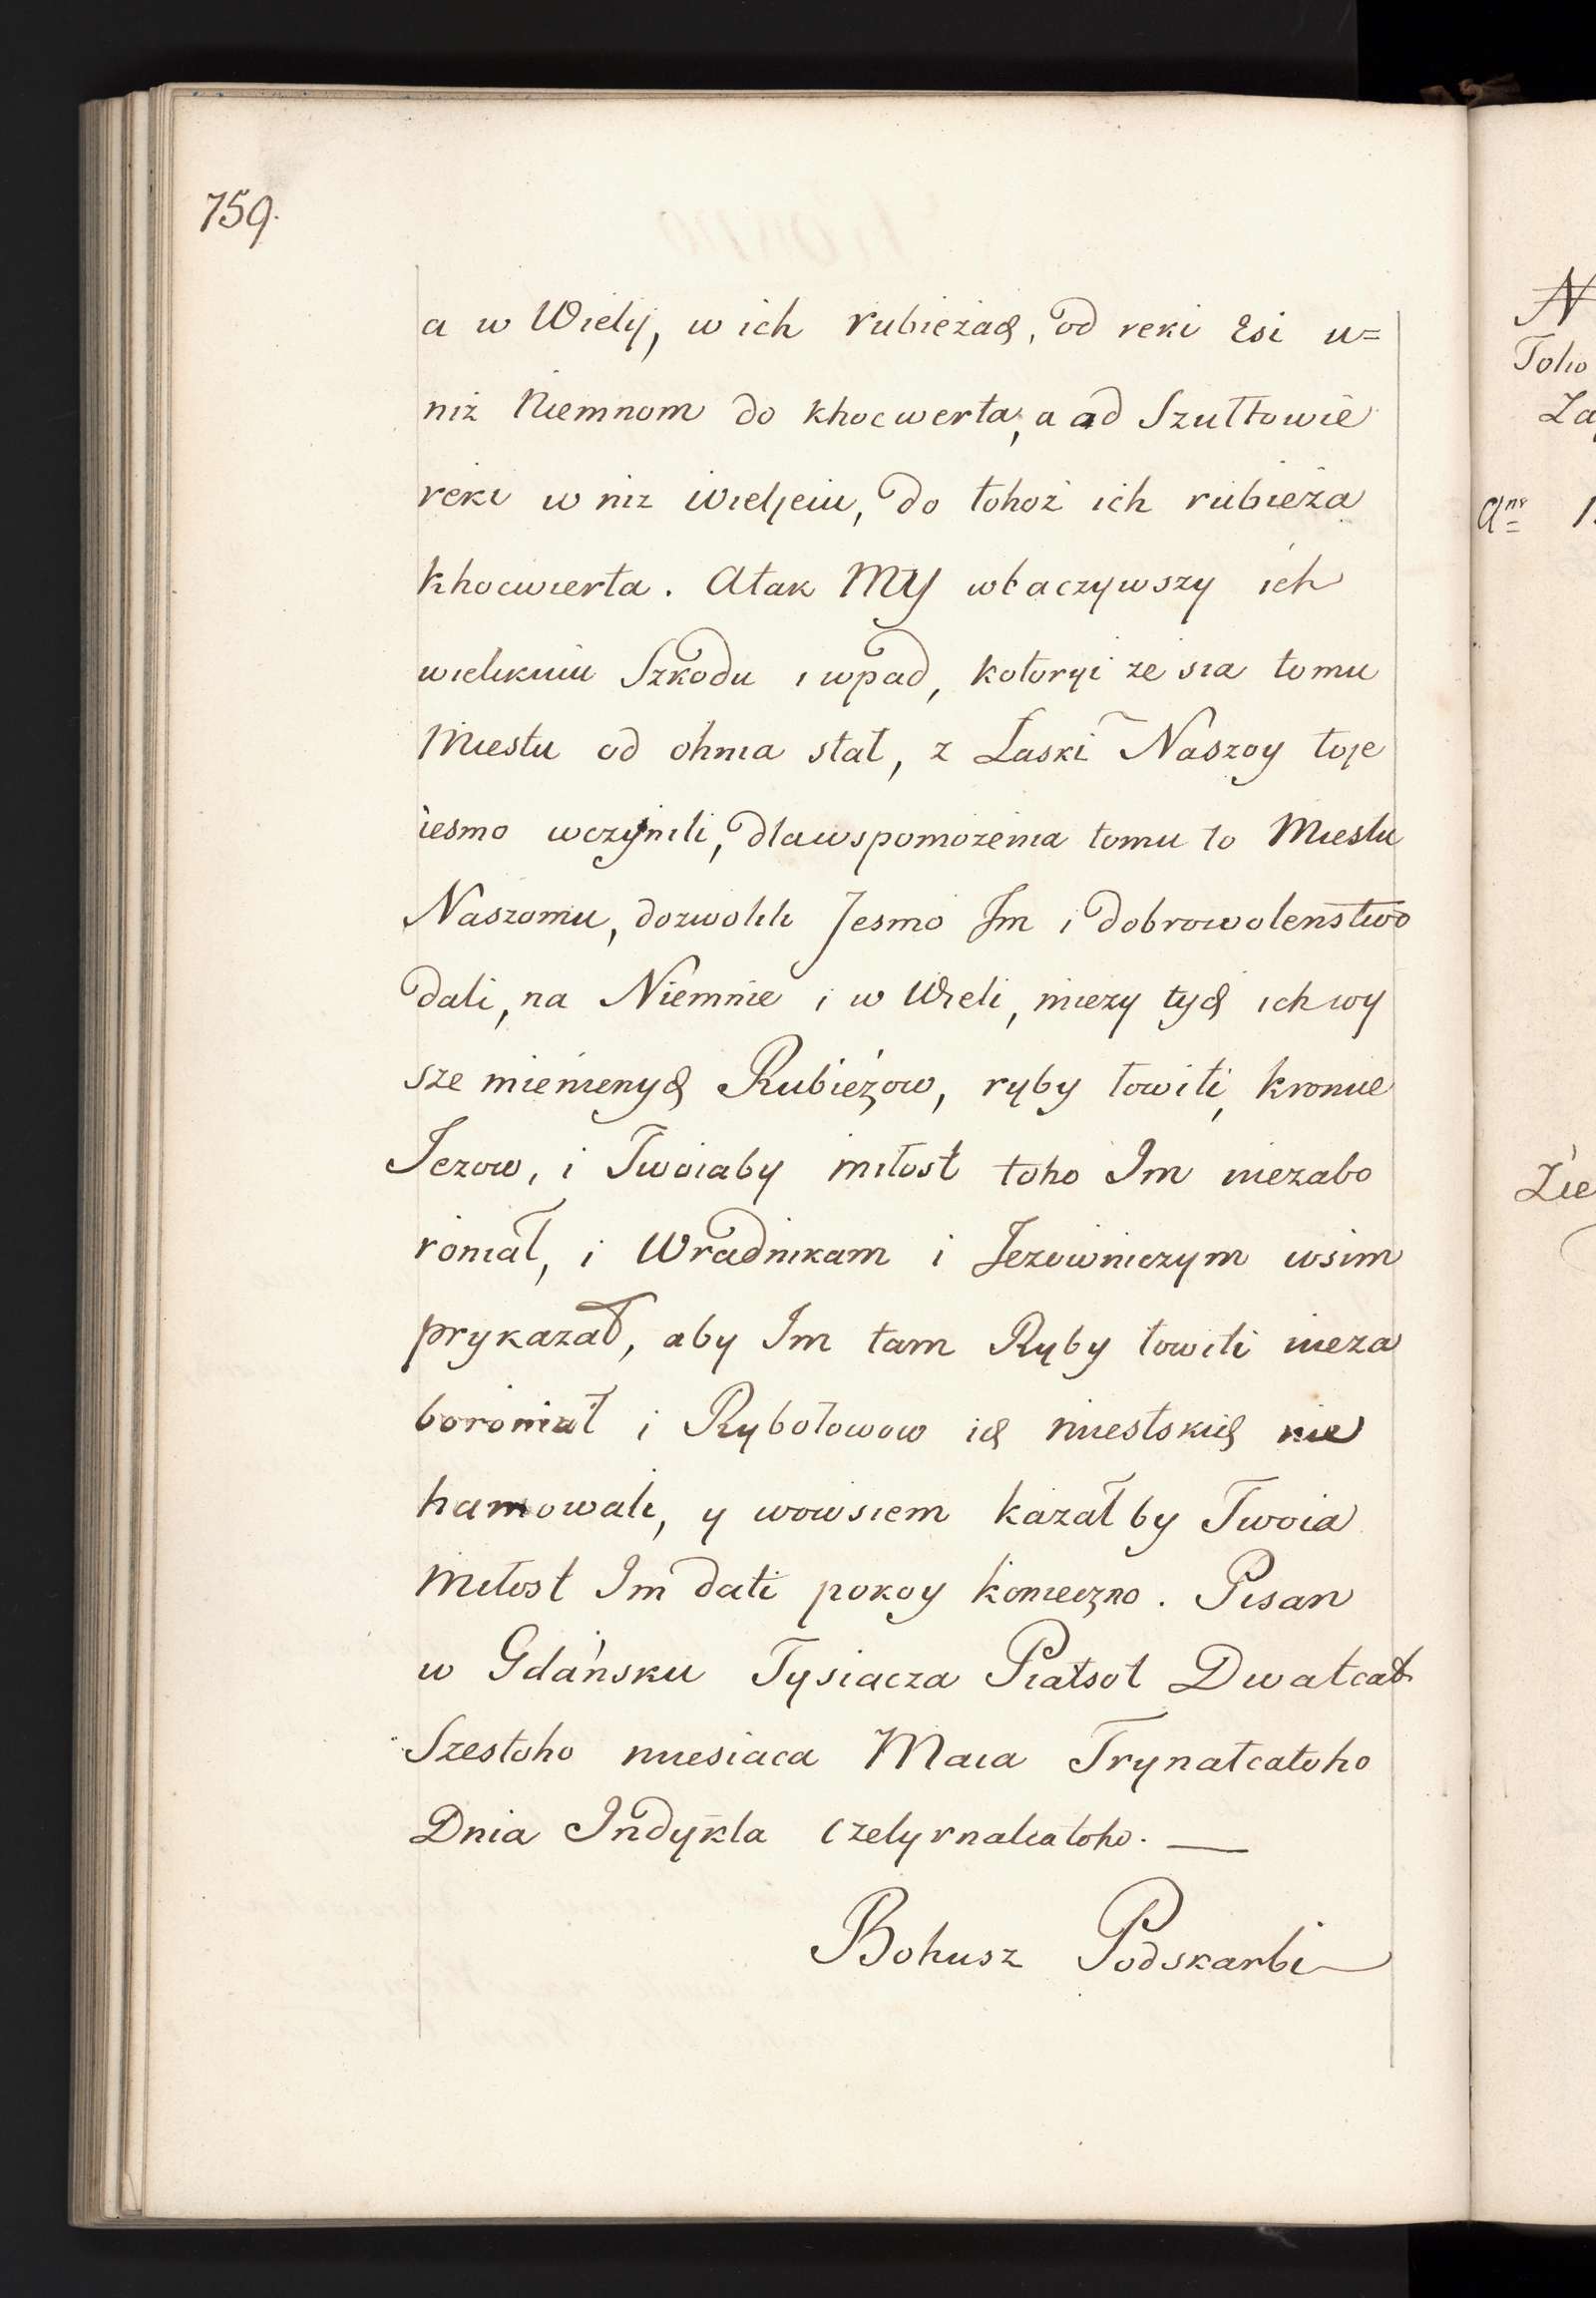 759.
a w Wiely, w ich rubieżach, od reki Esi u=
niż Niemnom do khocwerta, a ad Szułtowie
reki w niz Wieljeiu, do tohoż ich rubieża
khocwierta. Atak MY wbaczywszy ich
wielikuiu Szkodu i wpad, kotoryi ze sia tomu
Miestu od ohnia stał, z Łaski Naszoy toje
iesmo wczynili, dla wspomożenia tomu to Miestu
Naszomu, dozwolili Jesmo Im i dobrowolenstwo
dali, na Niemnie i w Wieli, miezy tych ich wy
sze mienienych Rubieżow, ryby łowiti, kromie
Jezow, i Twoiaby miłost toho Im niezabo
roniał, i Wradnikam i Jezowniczym wsim
prykazał, aby Im tam Ryby łowiti nieza
boroniał i Rybołowow ich miestskich nie
hamowali, y wowsiem kazał by Twoia
Miłost Im dati pokoy konieczno. Pisan
w Gdańsku Tysiacza Piatsot Dwatcat
Szestoho miesiaca Maia Trynatcatoho
Dnia Indykta Czetyrnatcatoho. —
Bohusz Podskarbi
N
Toho
Za
Anr 1
Zie